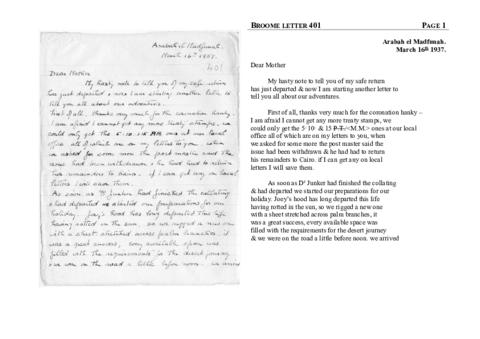 Arabah el Madfunah.
March 16th 1937.
401
Dear Mother
My hasty note to tell you of my safe return
has just departed & now I am starting another letter to
tell you all about our adventures.
First of all, thanks very much for the coronation hanky –
I am afraid I cannot get any more treaty stamps, we
could only get the 5·10·&15 MM. ones at our local
office all of which are on my letters to you, when
we asked for some more the post master said the
issue had been withdrawn & he had had to return
his remainders to Cairo. if I can get any on local
letters I will save them.
As soon as Dr Junker had finished the collating
& had departed we started our preparations for our
holiday. Joey's hood has long departed this life
having rotted in the sun, so we rigged a new one
with a sheet stretched across palm branches, it
was a great success, every available space was
filled with the requirements for the desert journey
& we were on the road a little before noon. we arrived
BROOME LETTER 401 PAGE 1
Arabah el Madfmah.
March 16th 1937.
Dear Mother
My hasty note to tell you of my safe return
has just departed & now I am starting another letter to
tell you all about our adventures.
First of all, thanks very much for the coronation hanky –
I am afraid I cannot get any more treaty stamps, we
could only get the 5·10· & 15 P.T.<M.M.> ones at our local
office all of which are on my letters to you, when
we asked for some more the post master said the
issue had been withdrawn & he had had to return
his remainders to Cairo. if I can get any on local
letters I will save them.
As soon as Dr Junker had finished the collating
& had departed we started our preparations for our
holiday. Joey's hood has long departed this life
having rotted in the sun, so we rigged a new one
with a sheet stretched across palm branches, it
was a great success, every available space was
filled with the requirements for the desert journey
& we were on the road a little before noon. we arrived